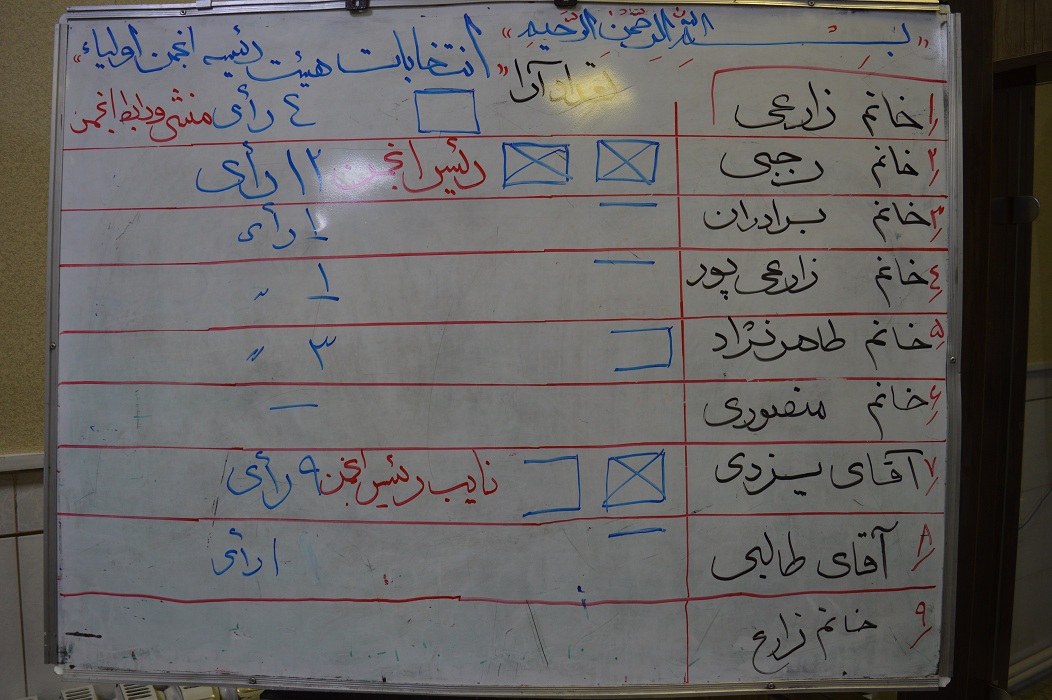 « بسم الله الرحمن الرحیم »
« انتخابات هیئت رئیسه انجمن اولیاء »
تعداد آرا
۱ خانم زارعی ٤ رأی منشی و رابط انجمن
۲ خانم رجبی رئیس انجمن ۱۲ رأی
۳ خانم برادران ۱ رأی
٤ خانم زارعی پور ۱ "
۵ خانم طاهرنژاد ۳ "
۶ خانم منصوری —
۷ آقای یزدی نایب رئیس انجمن ۹ رأی
۸ آقای طالبی ۱ رأی
۹ خانم زارع